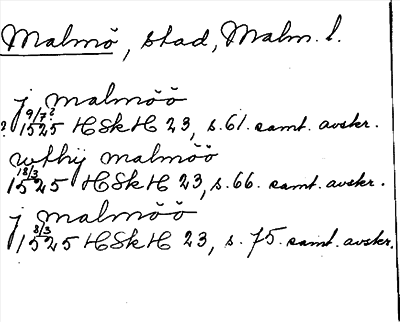 Malmö, stad, Malm. l.
j malmöö
? 9/7? 1525 HSkH 23, s. 61. samt. avskr.
wthij malmöö
18/3 1525 HSkH 23, s. 66. samt. avskr.
j malmöö
8/3 1525 HSkH 23, s. 75. samt. avskr.